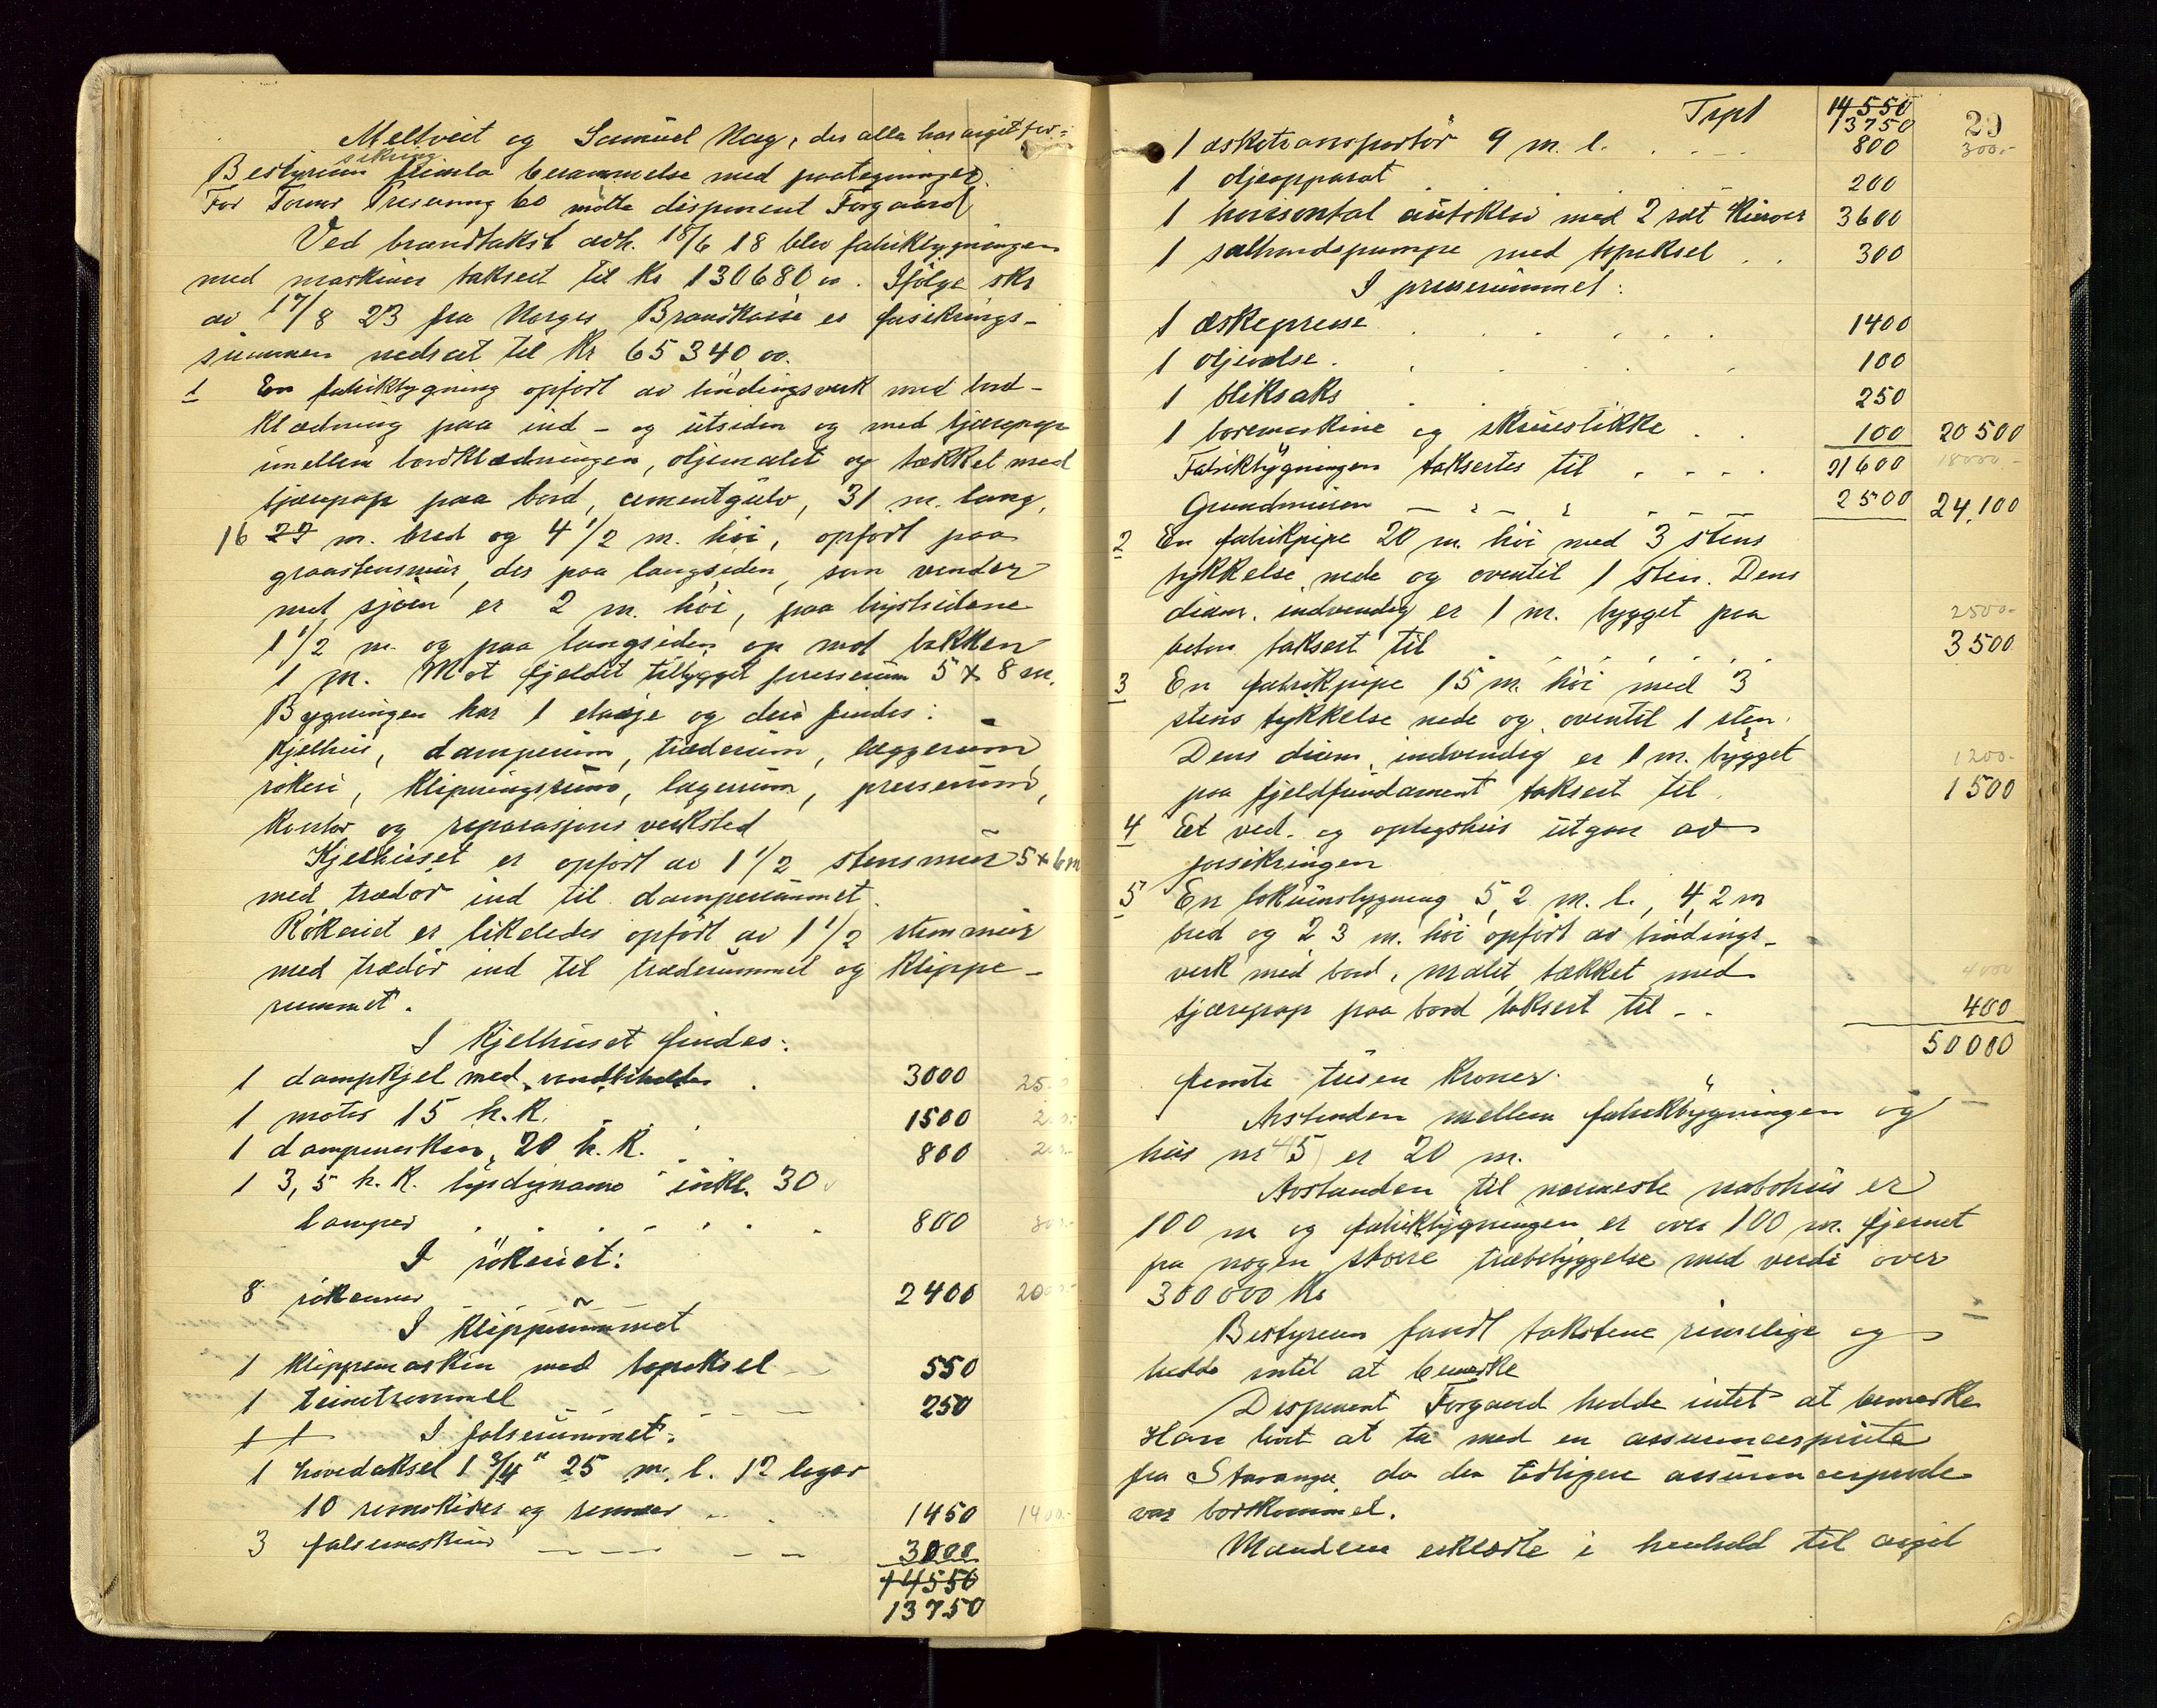 Meltveit og Samuel Hag, der alle har avgit for=
sikring
Bestyreren fremla berammelse med paategninger.
For Forus Preserving Co møtte disponent Forgaard
Ved brandtakst avh. 18/6 18 blev fabrikbygningen
med maskiner taksert til Kr 130680 oo. Ifölge skr
av 17/8 23 fra Norges Brandkasse er forsikrings-
summen nedsat til Kr 65340 oo.
1 En fabrikbygning opfört av bindingsverk med bord-
klædning paa ind- og utsiden og med tjærepap
imellem bordklædningen, oljemalet og tækket med
tjærepap paa bord, cementgulv, 31 m. lang,
16 27 m. bred og 4 1/2 m. höi, opfört paa
graastensmur, der paa langsiden, som vender
mot sjöen er 2 m. höi, paa kortsidene
1 1/2 m. og paa langsiden op mot bakken
1 m. Mot fjeldet tilbygget presserum 5 x 8 m.
Bygningen har 1 etasje og deri findes:
Kjelhus, damperum, træderum, læggerum,
rökeri, klipningsrum, lagerum, presserum,
kontor og reparasjonsverksted
Kjelhuset er opfört av 1 1/2 stens mur 5 x 6 m
med trædör ind til damperummet.
Rökeriet er likeledes opfört av 1 1/2 stens mur
med trædör ind til træderummet og klippe-
rummet.
I Kjelhuset findes:
1 dampkjel med vandbeholder . 3000
1 motor 15 h.K. 1500
1 dampmaskin, 20 h.K. 800
1 3,5 h.K. lysdynamo inkl. 30
lamper 800
I rökeriet:
8 rökovner 2400
I klipperummet
1 klippemaskin med topaksel 550
1 trintrommel 250
I falserummet:
1 hovedaksel 1 3/4" 25 m. l. 12 lager
10 remskiver og remmer 1450
3 falsemaskiner 3000
14550
13750
Trpt 14550 29
13750
1 æsketransportör 9 m. l. 800 300.-
1 oljeapparat 200
1 horisontal autoklav med 2 sæt kurver 3600
1 salthandspumpe med topaksel 300
I presserummet:
1 æskepresse 1400
1 oljevalse 100
1 bliksaks 250
1 boremaskine og skruestikke 100 20500
Fabrikbygningen taksertes til 21600 18000.-
Grundmuren 2500 24,100
2 En fabrikpipe 20 m. höi med 3 stens
tykkelse nede og oventil 1 sten. Dens
diam. indvendig er 1 m. bygget paa 2500.-
beton taksert til 3500
3 En fabrikpipe 15 m. höi med 3
stens tykkelse nede og oventil 1 sten.
Dens diam. indvendig er 1 m. bygget 1200.-
paa fjeldfundament taksert til. 1500
4 Et ved- og oplagshus utgaar av
forsikringen
5 En lokumsbygning 5,2 m. l., 4,2 m
bred og 2,3 m. höi opfört av bindings-
verk med bord, malet, tækket med
tjærepap paa bord taksert til 400
50000
femti tusen kroner.
Avstanden mellem fabrikbygningen og
hus nr 5 er 20 m.
Avstanden til nærmeste nabohus er
100 m og fabrikbygningen er over 100 m. fjernet
fra nogen större træbebyggelse med verdi over
300000 Kr
Bestyreren fandt takstene rimelige og
hadde intet at bemerke
Disponent Forgaard hadde intet at bemerke
Han lovet at ta med en assurancespröite
fra Stavanger, da den tidligere assuransepröite
var bortkommet.
Mændene erklærte i henhold til avgit